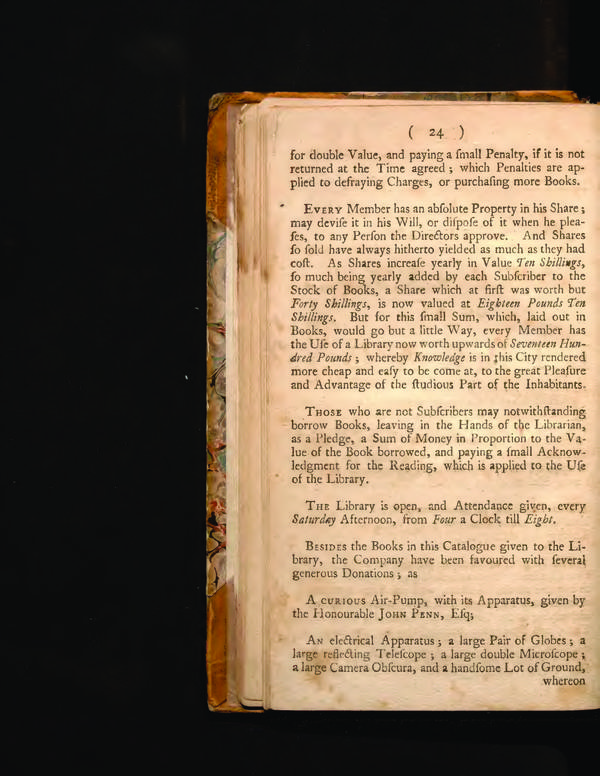 ( 24 )
for double Value, and paying a ſmall Penalty, if it is not
returned at the Time agreed; which Penalties are ap-
plied to defraying Charges, or purchaſing more Books.
EVERY Member has an abſolute Property in his Share;
may deviſe it in his Will, or diſpoſe of it when he plea-
ſes, to any Perſon the Directors approve. And Shares
ſo ſold have always hitherto yielded as much as they had
coſt. As Shares increaſe yearly in Value Ten Shillings,
ſo much being yearly added by each Subſcriber to the
Stock of Books, a Share which at firſt was worth but
Forty Shillings, is now valued at Eighteen Pounds Ten
Shillings. But for this ſmall Sum, which, laid out in
Books, would go but a little Way, every Member has
the Uſe of a Library now worth upwards of Seventeen Hun-
dred Pounds; whereby Knowledge is in this City rendered
more cheap and eaſy to be come at, to the great Pleaſure
and Advantage of the ſtudious Part of the Inhabitants.
THOSE who are not Subſcribers may notwithſtanding
borrow Books, leaving in the Hands of the Librarian,
as a Pledge, a Sum of Money in Proportion to the Va-
lue of the Book borrowed, and paying a ſmall Acknow-
ledgment for the Reading, which is applied to the Uſe
of the Library.
THE Library is open, and Attendance given, every
Saturday Afternoon, from Four a Clock till Eight.
BESIDES the Books in this Catalogue given to the Li-
brary, the Company have been favoured with ſeveral
generous Donations; as
A CURIOUS Air-Pump, with its Apparatus, given by
the Honourable JOHN PENN, Eſq;
AN electrical Apparatus; a large Pair of Globes; a
large reflecting Teleſcope; a large double Microſcope;
a large Camera Obſcura, and a handſome Lot of Ground,
whereon